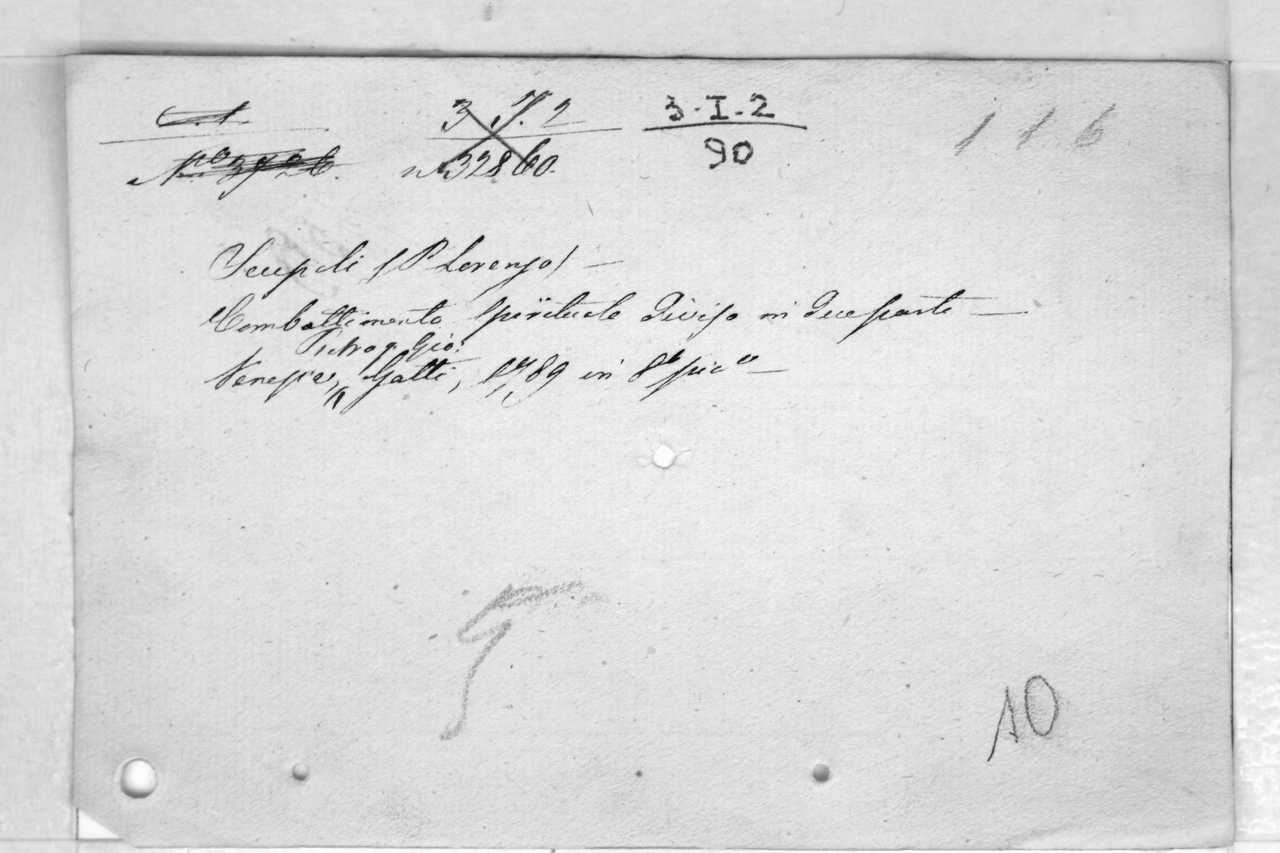 3. I. 2
3-I-2
1 1 6
n° 32860.
90
Scupoli (P Lorenzo) —
Combattimento Spirituale Diviso in due parti —
Pietro q. Gio:
Venezia, Gatti, 1789 in 8° pic° —
10